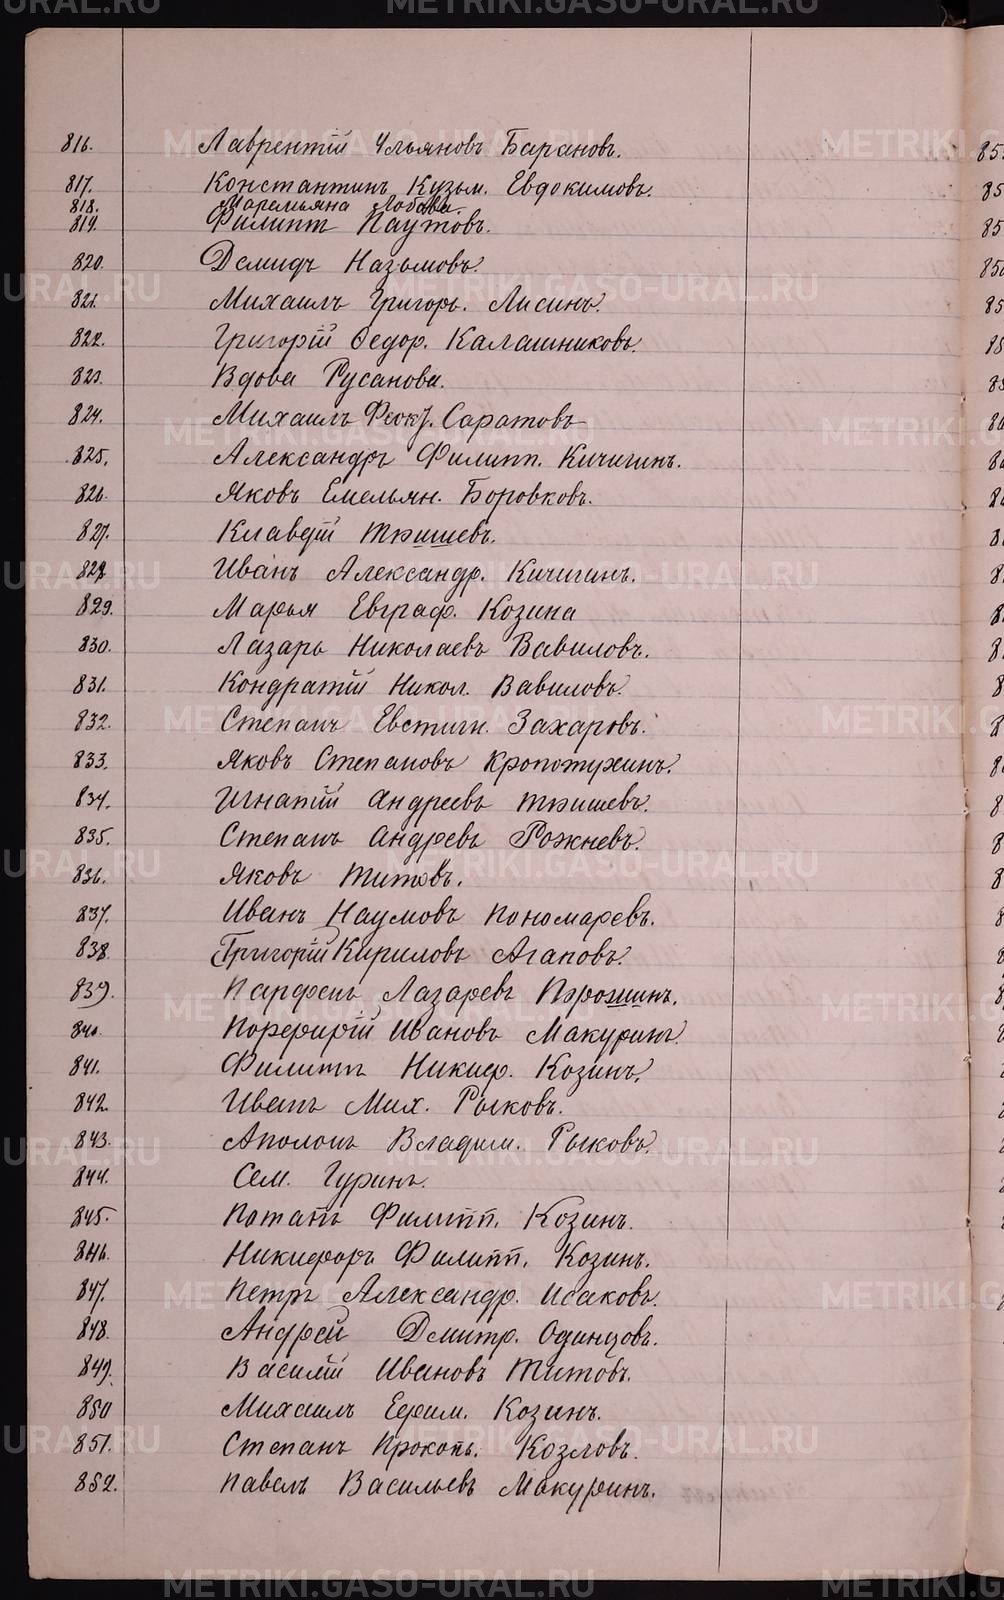 816. Лаврентій Ульяновъ Барановъ.
817. Константинъ Кузьм. Евдокимовъ.
818. Маремьяна Лобова.
819. Филиппъ Паутовъ.
820. Демидъ Назымовъ.
821. Михаилъ Григорь. Лисинъ.
822. Григорій Ѳедор. Калашниковъ.
823. Вдова Русанова.
824. Михаилъ Феок. Саратовъ
825. Александръ Филипп. Кичигинъ.
826. Яковъ Емельян. Боровковъ.
827. Клавдій Тришевъ.
828 Иванъ Александр. Кичигинъ.
829. Марья Евграф. Козина
830. Лазарь Николаевъ Вавиловъ.
831. Кондратій Никол. Вавиловъ.
832. Степанъ Евстигн. Захаровъ.
833. Яковъ Степановъ Кропотухинъ.
834. Игнатій Андреевъ Тришевъ.
835. Степанъ Андревъ Рожневъ.
836. Яковъ Титовъ.
837. Иванъ Наумовъ Пономаревъ.
838. Григорій Кириловъ Агаповъ.
839. Парфенъ Лазаревъ
840. Порфирій Ивановъ Макуринъ.
841. Филиппъ Никиф. Козинъ.
842. Иванъ Мих. Рыковъ.
843. Аполонъ Владим. Рыковъ.
844. Сем. Гуринъ.
845. Потапъ Филипп. Козинъ.
846. Никифоръ Филипп. Козинъ.
847. Петръ Александр. Исаковъ.
848. Андрей Дмитр. Одинцовъ.
849. Василій Ивановъ Титовъ.
850 Михаилъ Ефим. Козинъ.
851. Степанъ Прокопь. Козловъ.
852. Павелъ Васильевъ Макуринъ.
METRIKI.GASO-URAL.RU